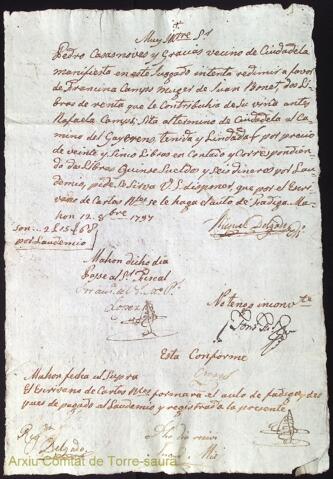 Muy Iltre Sr
Pedro Casasnoves y Gracias vecino de Ciudadela
manifiesta en este Juzgado intenta redimir a favor
de Francina Camps Muger de Juan Bonet, dos Li
bras de renta que le Contribuhia de su viña antes
Rafaela Camps, Sita al termino de Ciudadela al
Camino del, tenida y Lindada &c por precio
de veinte y Sinco Libras en Contado y Correspondien
do dos Libras Quinse Sueldos y seis dineros por Lau
demio, pide se sirva V.S. disponer que por el Escri
vano de Cartas Rles se le haga el auto de fadiga. Ma
hon 12. 8bre 1797
son.. 2 L 15 s 6 d
por Laudemio
Mahon dicho dia
Pase al Sr Fiscal
No tengo inconvte
Esta Conforme
Mahon fecha ut Supra
El Escrivano de Cartas Rles formará el auto de fadiga, des
pues de pagado el Laudemio y registrado la presente
Delgado
Arxiu Comtat de Torre-saura